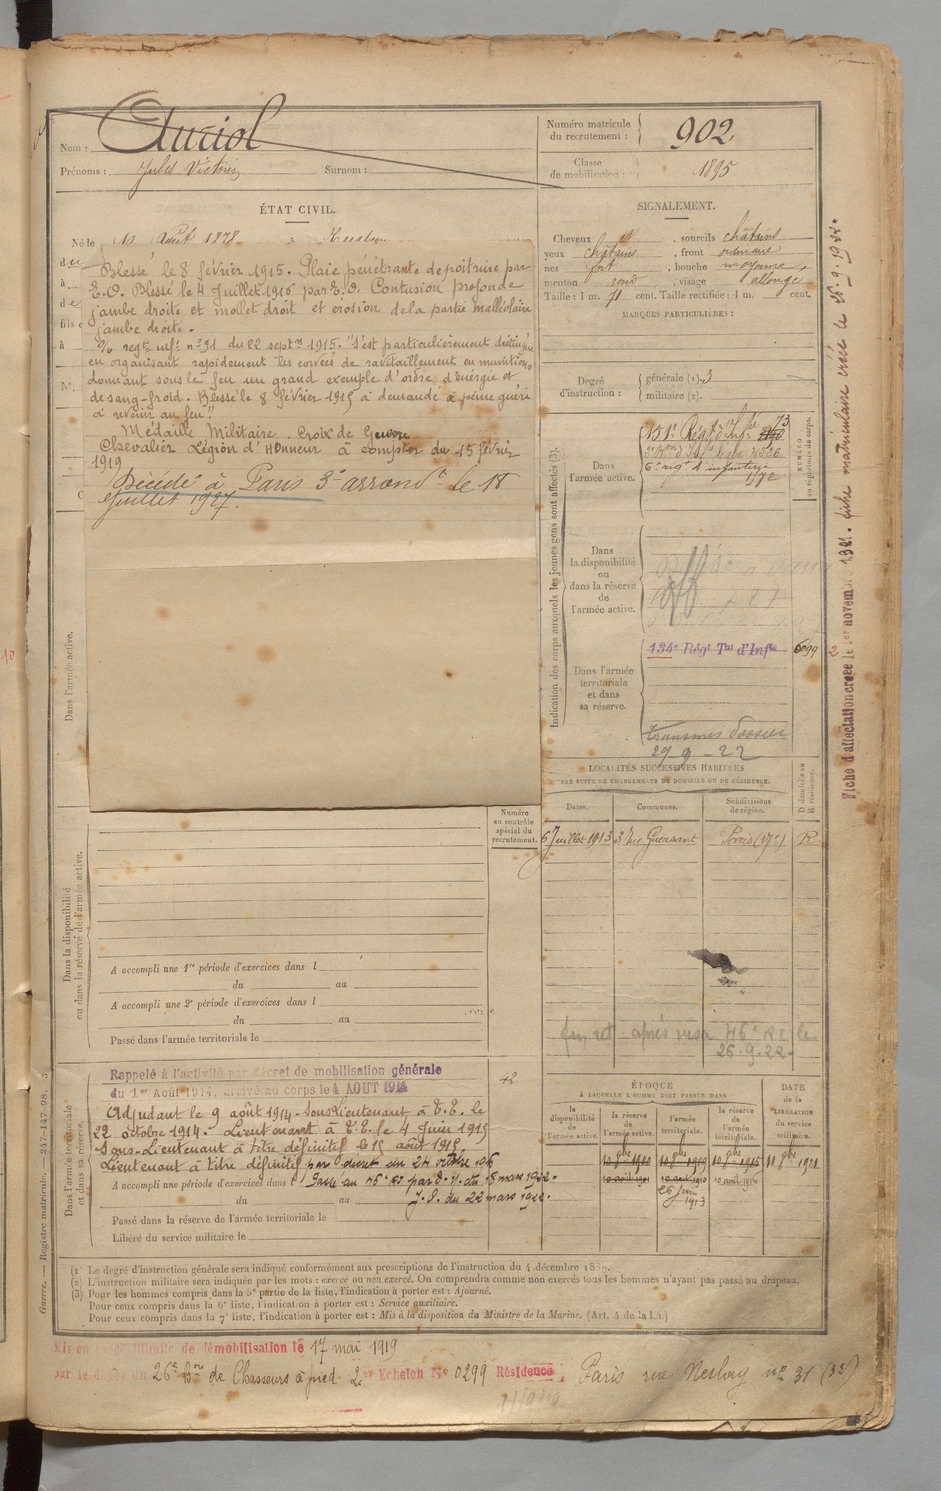 Nom : Auriol
Prénoms : Jules Victorin Surnom :
Numéro matricule
du recrutement : 902
Classe
de mobilisation : 1895
ÉTAT CIVIL.
Né le 10 Août 1878 à
Blessé le 8 février 1915. Plaie pénétrante de poitrine par
E.O. Blessé le 4 Juillet 1916 par E.O. Contusion profonde
jambe droite et mollet droit et érosion de la partie malléolaire
jambe droite.
regte inf. n° 91 du 22 septre 1915. "S'est particulièrement distingué
en organisant rapidement les corvées de ravitaillement en munitions
donnant sous le feu un grand exemple d'ordre, d'énergie et
de sang-froid. Blessé le 8 février 1915 a demandé à peine guéri
à revenir au feu".
Médaille Militaire. Croix de Guerre
Chevalier Légion d'Honneur à compter du 15 février
1919
Décédé à Paris 3e arrondt le 18
Juillet 1927.
SIGNALEMENT.
Cheveux , sourcils châtains
yeux châtains , front ordinaire
nez fort , bouche moyenne
menton rond , visage allongé
Taille : 1 m. 71 cent. Taille rectifiée : 1 m. cent.
MARQUES PARTICULIÈRES :
Degré
d'instruction :
générale (1). 3
militaire (2).
Indication des corps auxquels les jeunes gens sont affectés (3).
NUMÉRO
au répertoire du corps.
Dans
l'armée active.
151e Régt d'Infie 73
6e régt d'infanterie
1572
Dans
la disponibilité
ou
dans la réserve
de
l'armée active.
Dans l'armée
territoriale
et dans
sa réserve.
134e Régt Tal d'Infie 6099 2
transmis dossier
29-9-22
Fiche d'affectation créée le 1er novembre 1921. fiche matriculaire créée le 25.9.1922.
LOCALITÉS SUCCESSIVES HABITÉES
PAR SUITE DE CHANGEMENTS DE DOMICILE OU DE RÉSIDENCE.
Dates. Communes. Subdivisions
de région. D domicile ou
R résidence.
6 Juillet 1913 3 rue Guersant Paris (17e) R
après visa 46e RI le
26.9.22
Dans l'armée active.
Numéro
au contrôle
spécial du
recrutement.
Dans la disponibilité
ou dans la réserve de l'armée active.
A accompli une 1re période d'exercices dans l
du au
A accompli une 2e période d'exercices dans l
du au
Passé dans l'armée territoriale le
Dans l'armée territoriale
et dans sa réserve.
Rappelé à l'activité par décret de mobilisation générale
du 1er Août 1914, arrivé au corps le 4 AOUT 1914
42
Adjudant le 9 août 1914. Sous Lieutenant à T.T. le
22 octobre 1914. Lieutenant à T.T. le 4 Juin 1915
Sous-Lieutenant à titre définitif le 15 août 1915
Lieutenant à titre définitif par Décret du 24 octobre 1916
A accompli une période d'exercices dans l Passé au 46e RI par d. M. du 18 mars 1922.
du au J.O. du 22 mars 1922.
Passé dans la réserve de l'armée territoriale le
Libéré du service militaire le
ÉPOQUE
À LAQUELLE L'HOMME DOIT PASSER DANS
DATE
de la
LIBÉRATION
du service
militaire.
la
disponibilité
de
l'armée active.
la réserve
de
l'armée active.
l'armée
territoriale.
la réserve
de
l'armée
territoriale.
10 8bre 1900 10 8bre 1909 10 8bre 1915 10 8bre 1921
10 août 1901 10 août 1910 10 août 1916
26 Juin
1913
(1) Le degré d'instruction générale sera indiqué conformément aux prescriptions de l'instruction du 4 décembre 1889.
(2) L'instruction militaire sera indiquée par les mots : exercé ou non exercé. On comprendra comme non exercés tous les hommes n'ayant pas passé au drapeau.
(3) Pour les hommes compris dans la 5e partie de la liste, l'indication à porter est : Ajourné.
Pour ceux compris dans la 6e liste, l'indication à porter est : Service auxiliaire.
Pour ceux compris dans la 7e liste, l'indication à porter est : Mis à la disposition du Ministre de la Marine. (Art. 4 de la loi.)
Guerre. — Registre matricule. — 247-147-98.
Mis en congé illimité de démobilisation le 17 mai 1919
par le dépôt du 26e Bon de Chasseurs à pied 2e Echelon N° 0299 Résidence : Paris rue Meslay n° 31 (3e)